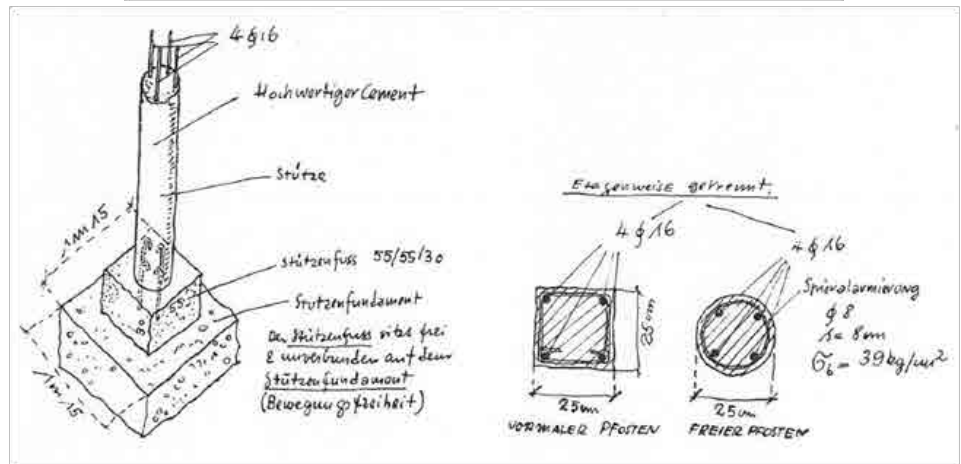 4 ϕ 16
Hochwertiger Cement
Stütze
1m 15
Stützenfuss 55/55/30
Stützenfundament
55
30
1m 15
Der Stützenfuss sitzt frei
& unverbunden auf dem
Stützenfundament
(Bewegungsfreiheit)
Etagenweise getrennt.
4 ϕ 16
4 ϕ 16
Spiralarmierung
ϕ 8
s = 8cm
σb = 39 kg/cm²
25cm
25cm
25cm
NORMALER PFOSTEN
FREIER PFOSTEN